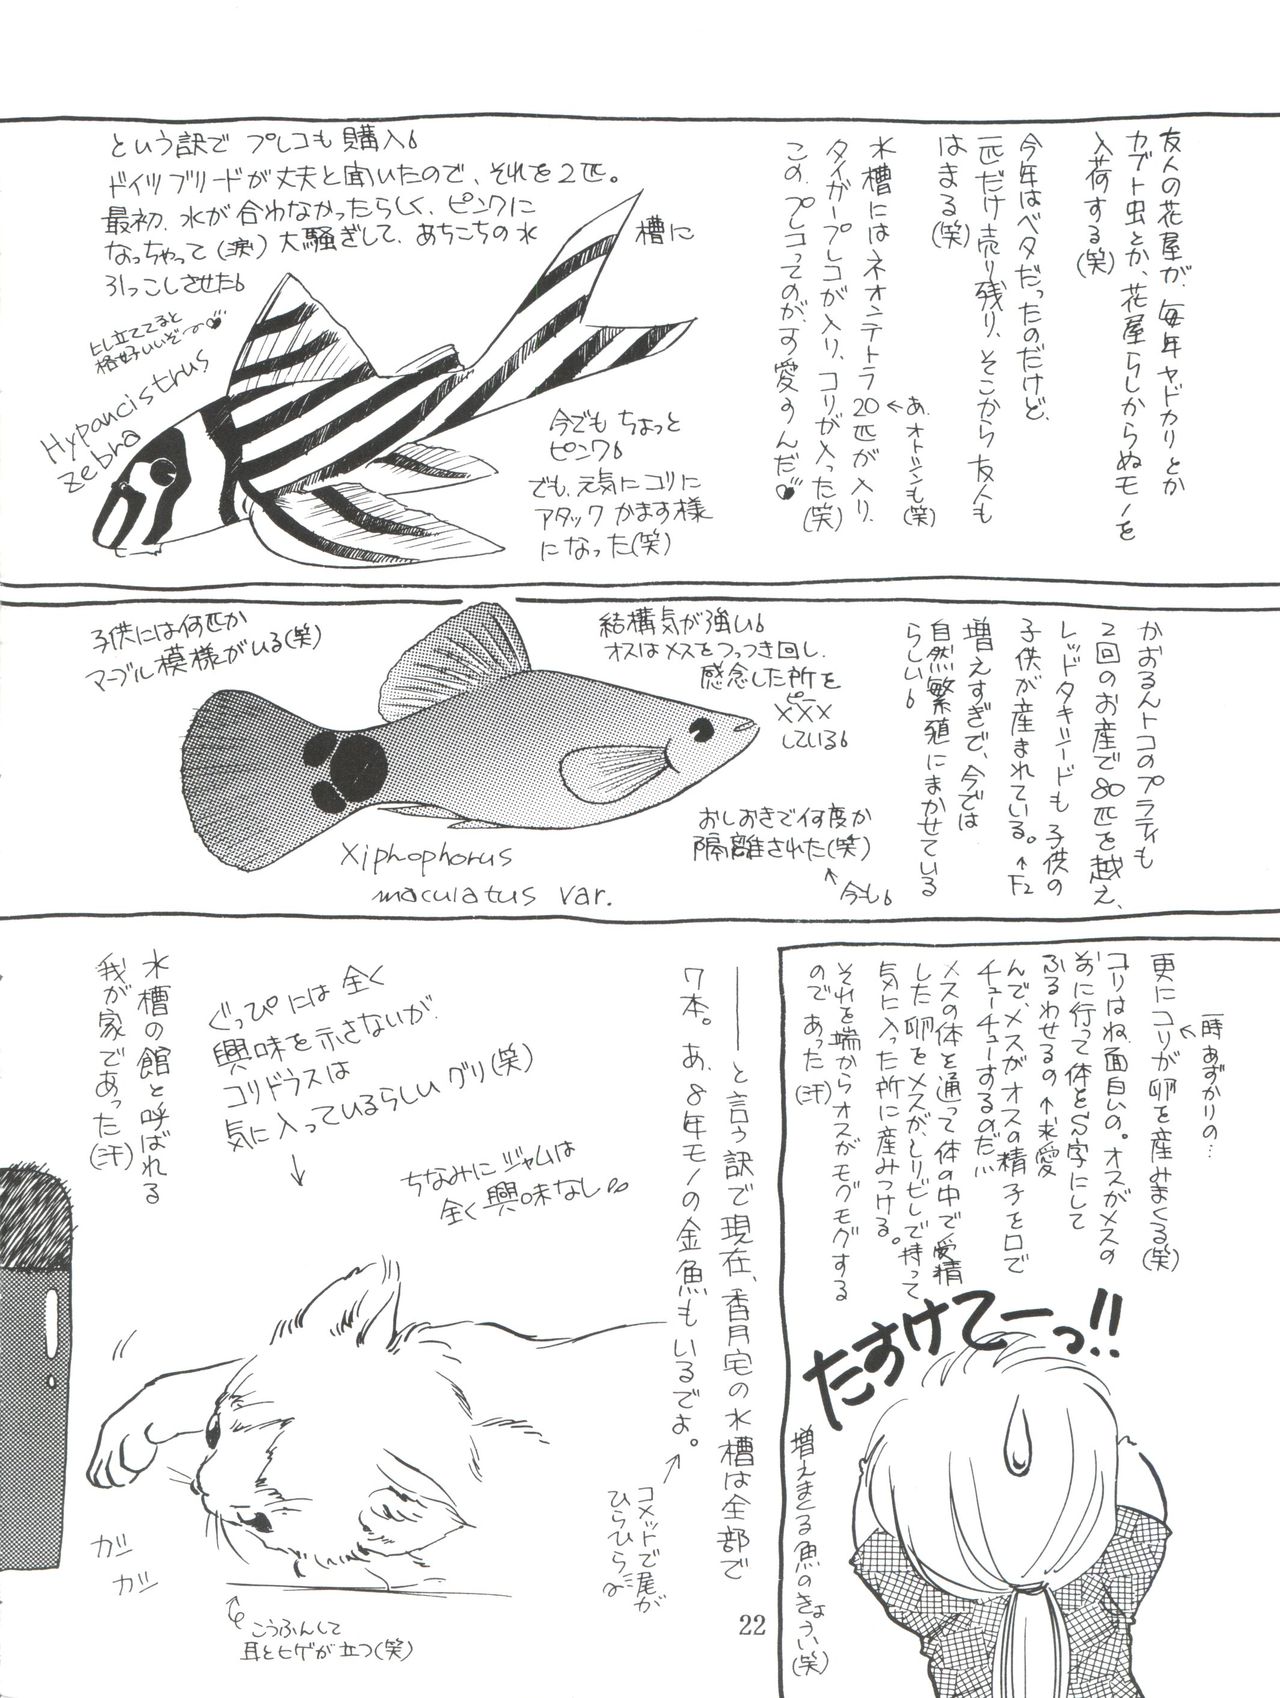 友人の花屋が、毎年ヤドカリとか
カブト虫とか、花屋らしからぬモノを
入荷する(笑)
今年はベタだったのだけど、
一匹だけ売り残り、そこから友人も
はまる(笑)
水槽にはネオンテトラ20匹が入り、
あ、オトシンも(笑)
タイガープレコが入り、コリが入った(笑)
この、プレコってのが可愛すんだ
という訳で プレコも購入
ドイツブリードが丈夫と聞いたので、それを2匹。
最初、水が合わなかったらしく、ピンクに
なっちゃって(涙)大騒ぎして、あちこちの水
槽に
引っこしさせた
ヒレ立ててると
格好いいぞ〜
Hypancistrus
zebra
今でもちょっと
ピンク
でも、元気にコリに
アタックかます様
になった(笑)
かおるんトコのプラティも
2回のお産で80匹を越え、
レッドタキシードも子供の
子供が産まれている。
↑F2
増えすぎで、今では
自然繁殖にまかせている
らしい
結構気が強い
オスはメスをつっつき回し、
感念した所を
ピー
×××
している
子供には何匹か
マーブル模様がいる(笑)
おしおきで何度か
隔離された(笑)
↑
今も
Xiphophorus
maculatus var.
一時あずかりの…
更にコリが卵を産みまくる(笑)
コリはね、面白いの。オスがメスの
前に行って体をS字にして
ふるわせるの ↑求愛
んで、メスがオスの精子を口で
チューチューするのだ!!
メスの体を通って体の中で受精
した卵をメスがヒレで持って
気に入った所に産みつける。
それを端からオスがモグモグする
のであった(汗)
たすけてーっ!!
増えまくる魚のきょうい(笑)
――と言う訳で現在、香月宅の水槽は全部で
7本。あ、8年モノの金魚もいるでよ。
コメットで尾が
ひらひら〜
ぐっぴには全く
興味を示さないが、
コリドラスは
気に入っているらしいグリ(笑)
↓
ちなみにジャムは
全く興味なし
水槽の館と呼ばれる
我が家であった(汗)
ガジ
ガジ
こうふんして
耳とヒゲが立つ(笑)
22